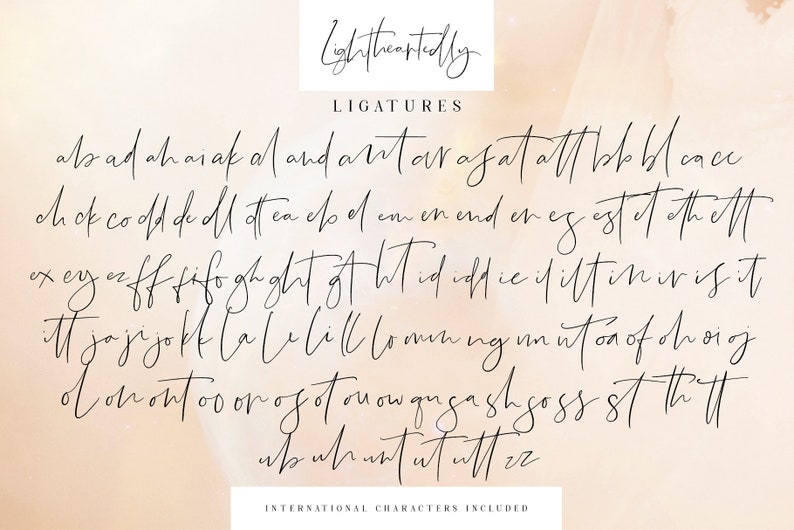 Lightheartedly
LIGATURES
ab ad ah ai ak al and ant ar as at att bb bl ca cc
ch ck co dd de dll dt ea eb el em en end er es est et eth ett
ex ey ez ff fi fo gh ght gt ht id idd ie il ilt in ir is it
itt ja ji jo kk la le li ll lo mm ng nn nt oa of oh oi oj
ol on ont oo or os ot ou ow qu sa sh so ss st th tt
ub uh unt ut utt zz
INTERNATIONAL CHARACTERS INCLUDED